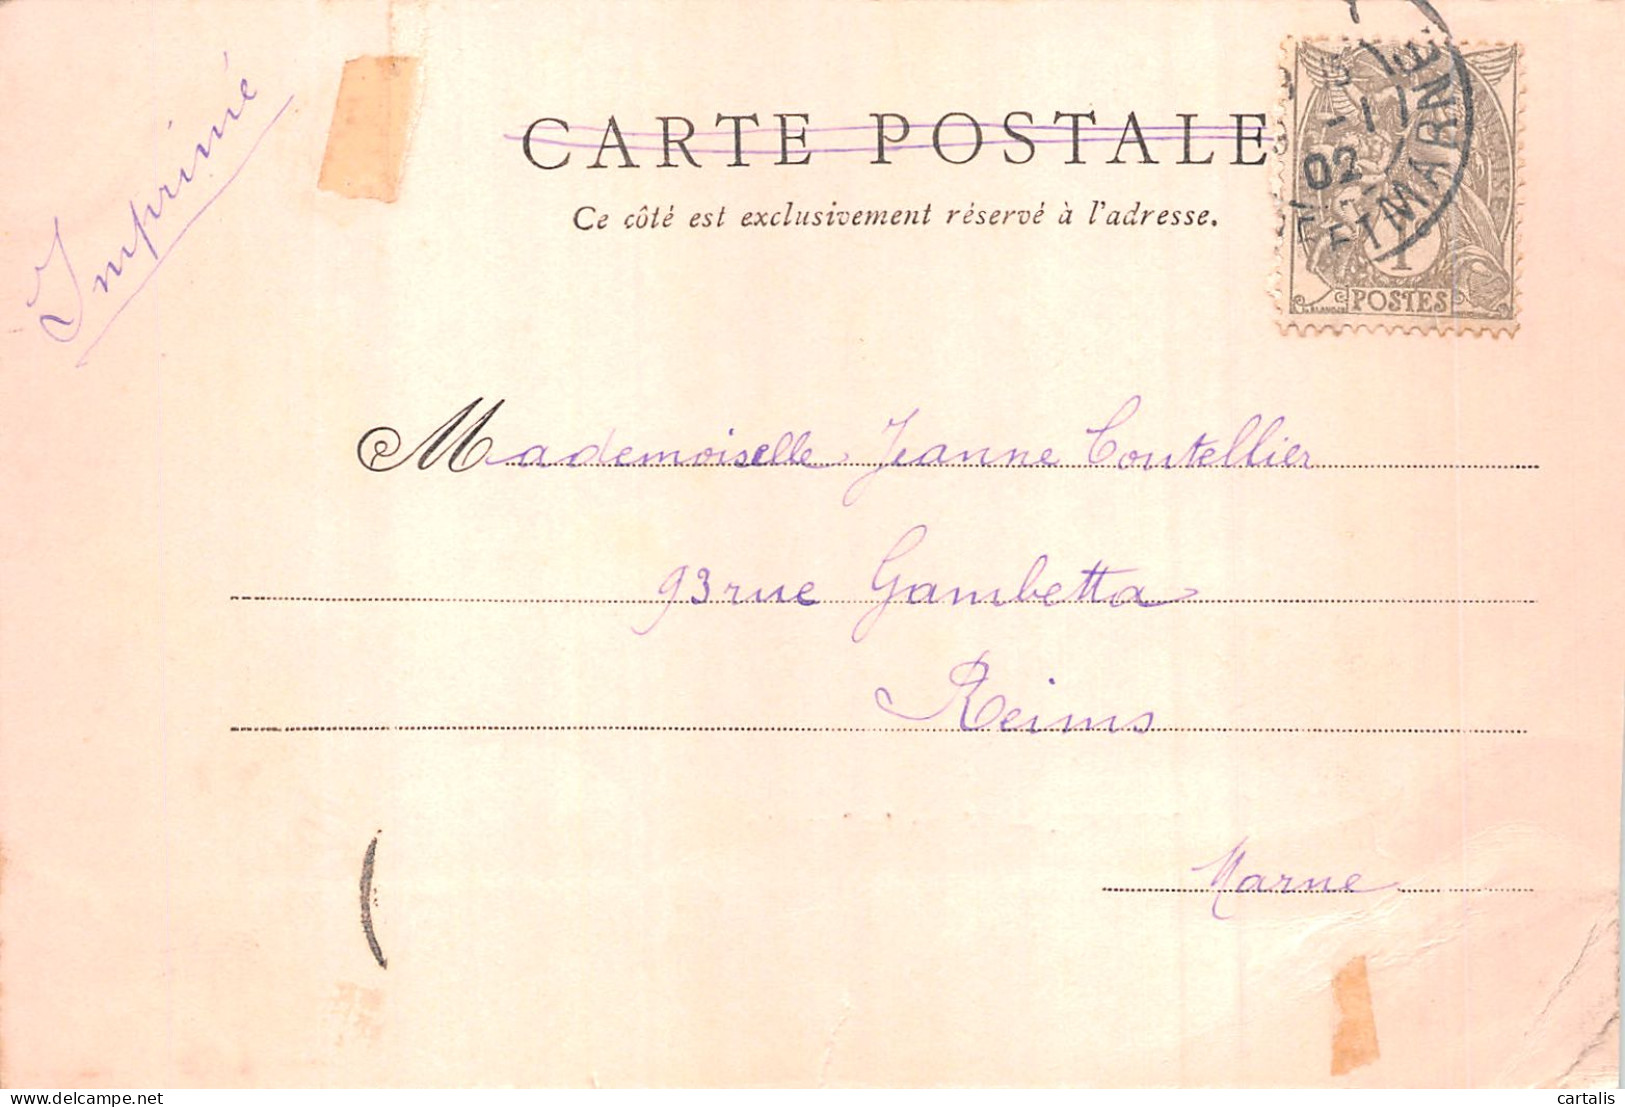 Imprimé
CARTE POSTALE
Ce côté est exclusivement réservé à l'adresse.
-11
02
ET MARNE
1
POSTES
Mademoiselle Jeanne Coutellier
93 rue Gambetta
Reims
Marne
delcampe.net
cartalis